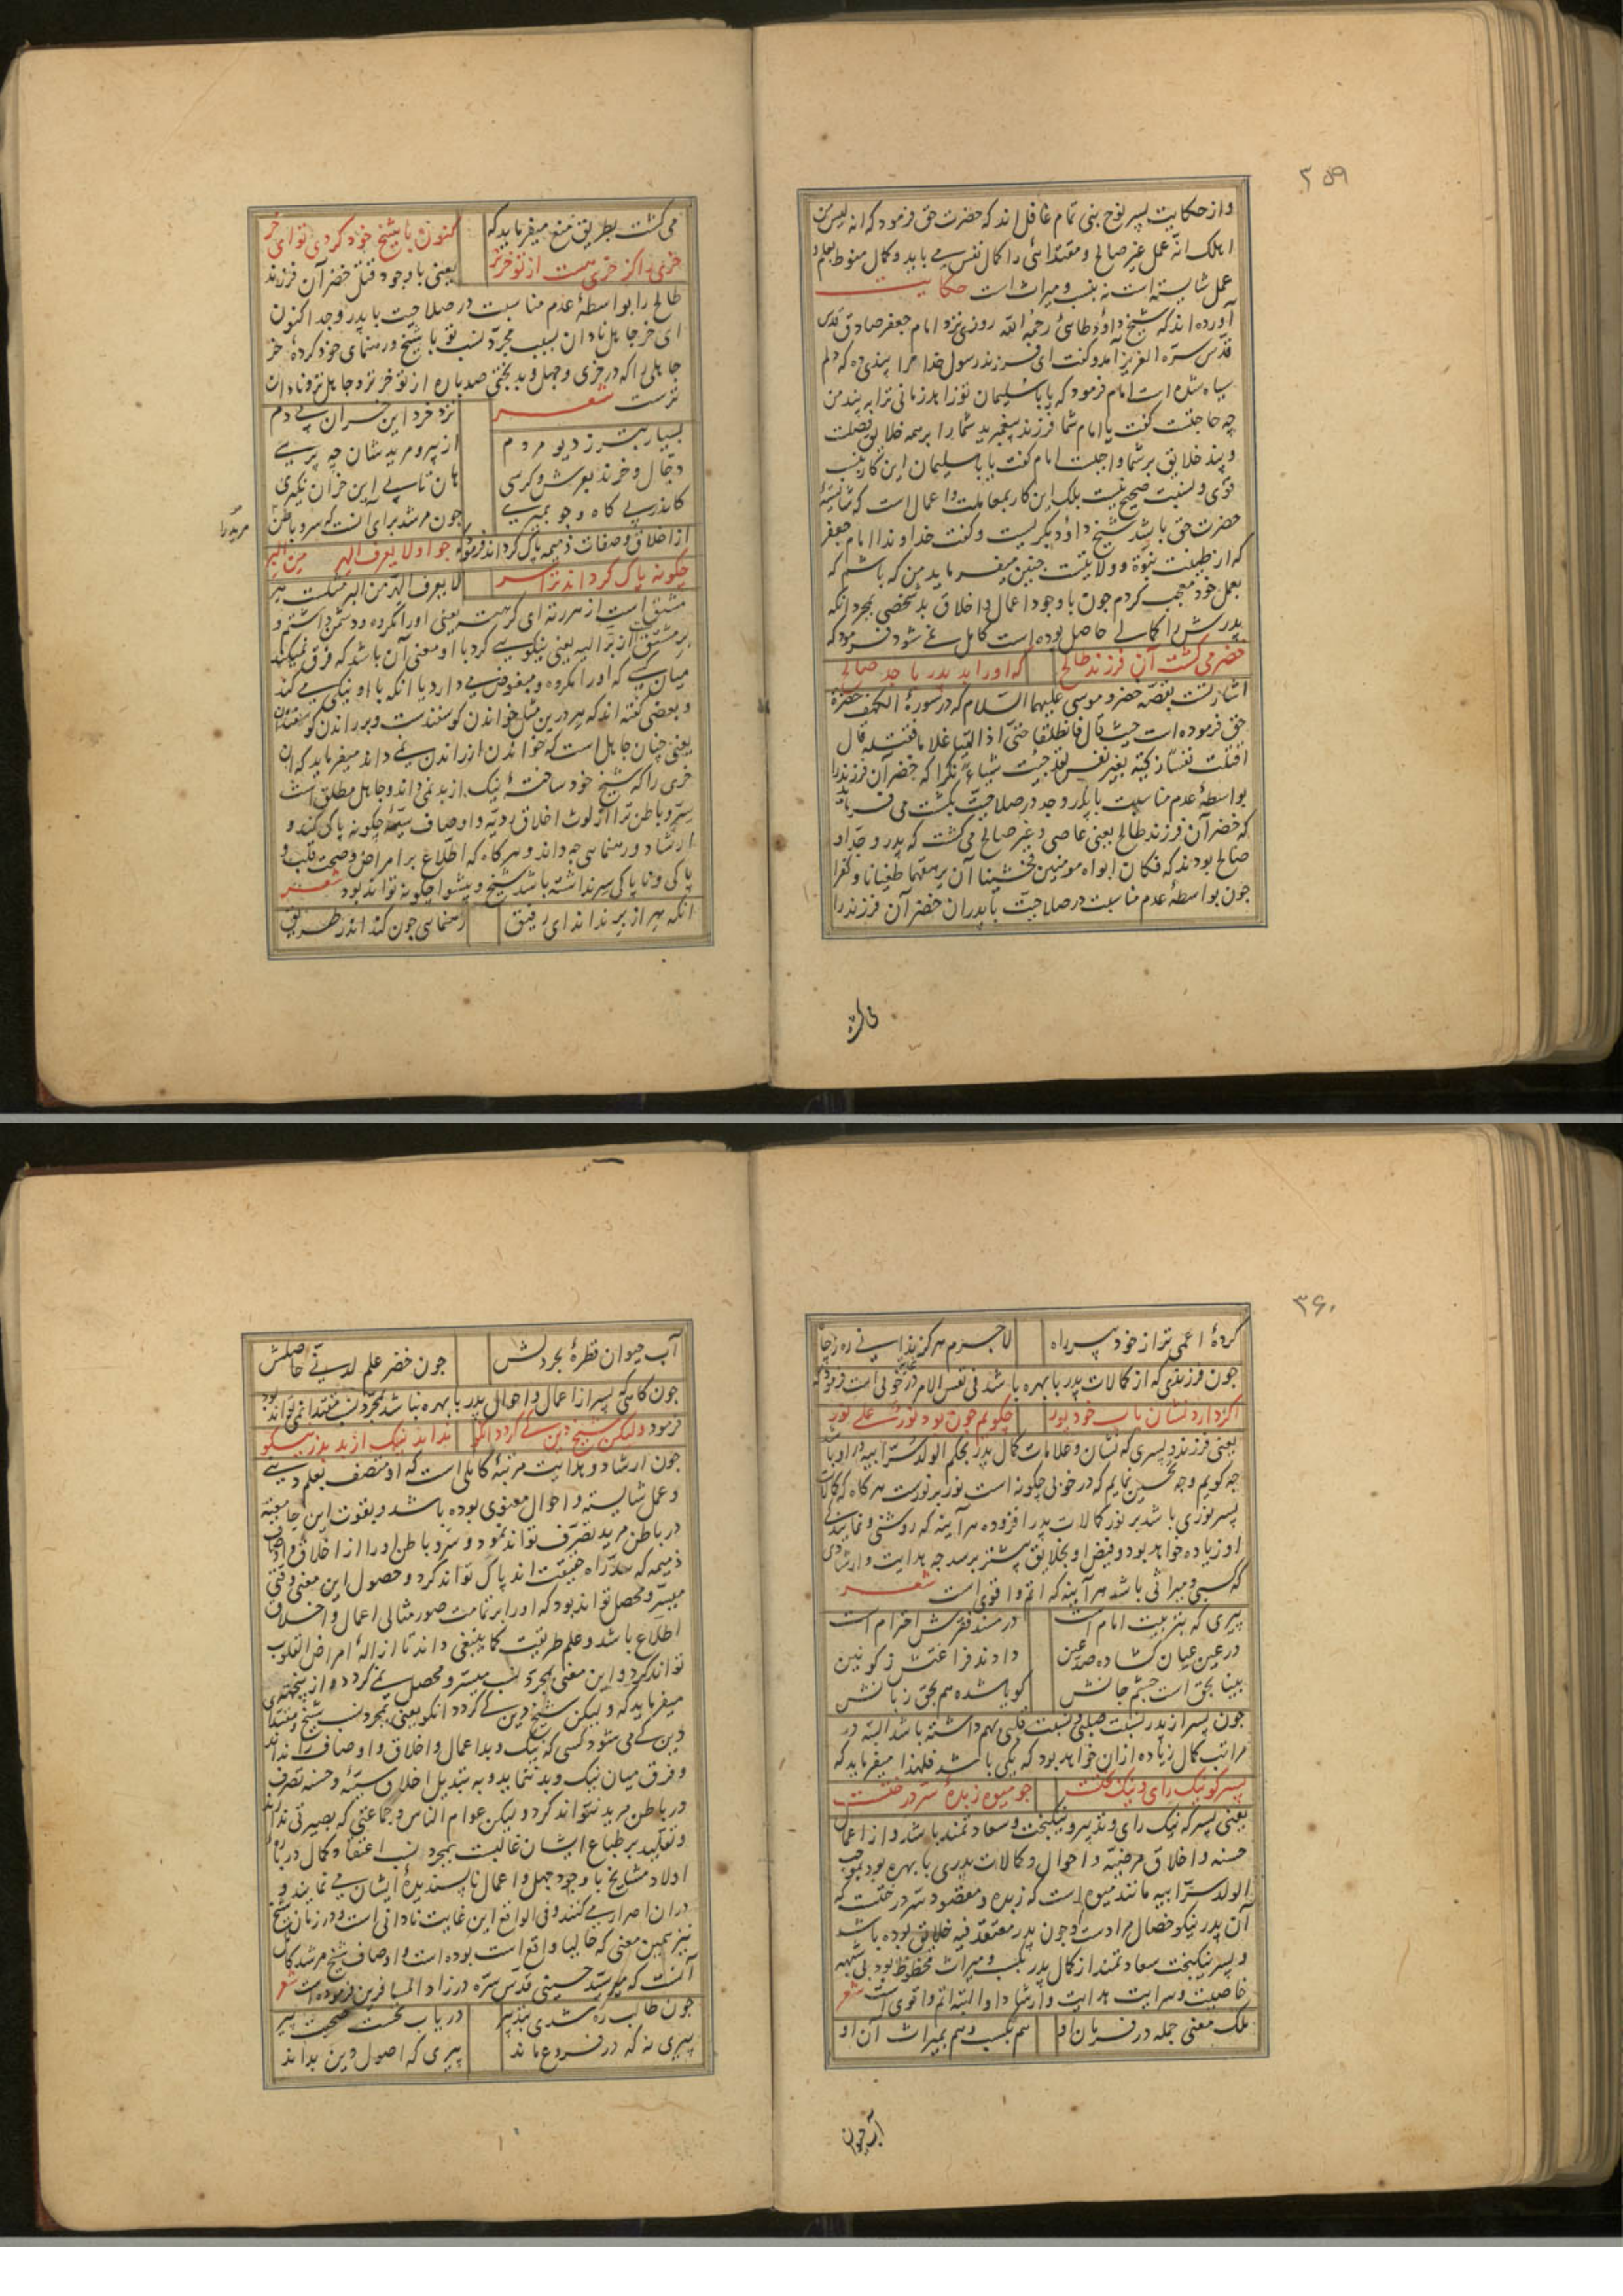 ۳۵۹
واز حکایت پسر نوح نبی تمام غافل اند که حضرت حق فرمود که انه لیس من
اهلک انّه عمل غیر صالح ومقتدائی را کمال نفس می باید و کمال منوط بعلم و
عمل شایسته است نه بنسب ومیراث است حکایت
آورده اند که شیخ داؤد طائی رحمه الله روزی نزد امام جعفر صادق قدس
قدّس سرّه العزیز آمد وگفت ای فرزند رسول خدا مرا پندی ده که دلم
سیاه شده است امام فرمود که یابا سلیمان تو زاهد زمانی ترا به پند من
چه حاجتست گفت یا امام شما فرزند پیغمبرید شما را بر همه خلایق فضلت
و پند خلایق بر شما واجبست امام گفت یابا سلیمان این کار بنسب
قوی ونسبت صحیح نیست بلک این کار بمعاملت و اعمال است که شایستهٔ
حضرت حق باشد شیخ داؤد بگریست وگفت خداوندا امام جعفر
که از طینت نبوّة و ولایتست چنین میفرماید من که باشم که
بعمل خود معجب گردم چون با وجود اعمال و اخلاق بد شخصی بمجرد انکه
پدرش را کمالی حاصل بوده است کامل نمی شود فرمود که
خضر می کشت آن فرزند طالح که او را بد پدر با جد صالح
اشارتست بقصّه خضر و موسی علیهما السّلام که در سورة الکهف حضرة
حق فرموده است حیث قال فانطلقا حتّی اذا لقیا غلاما فقتله قال
اقتلت نفسا زکیّة بغیر نفس لقد جئت شیئاً نکرا که خضر آن فرزند را
بواسطهٔ عدم مناسبت با پدر و جد در صلاحیّت بکشت می فرماید
که خضر آن فرزند طالح یعنی عاصی و غیر صالح می کشت که پدر و جدّ او
صالح بودند که فکان ابواه مومنین فخشینا ان یرهقهما طغیانا وکفرا
چون بواسطهٔ عدم مناسبت در صلاحیّت با پدران خضر آن فرزند را
می کشت
می کشت بطریق منع میفرماید که کنون با شیخ خود کردی تو ای خر
خری را کز خری هست از تو خرتر یعنی با وجود قتل خضر آن فرزند
طالح را بواسطهٔ عدم مناسبت در صلاحیت با پدر و جد اکنون
ای خر جاهل نادان بسبب مجرّد نسب تو با شیخ و رهنمای خود کردهٔ خر
جاهلی را که در خری و جهل و بدبختی صد باره از تو خرتر و جاهل تر و نادان
ترست شعر
نزد خرد این خران بی دم بسیار بتر ز دیو مردم
از پیر و مریدشان چه پرسی دجّال و خرند بعرش و کرسی
هان تا پی این خران نگیری کاندر پی کاه و جو بمیری
چون مرشد برای آنست که سر و باطن
مرید را
از اخلاق و صفات ذمیمه پاک گرداند فرمود چو او لا یعرف الهر من البر
چگونه پاک گرداند ترا سر لا یعرف الهرّ من البر مثلست هر
مشتق است از هررته ای کرهته یعنی او را مکروه و دشمن داشتم و
بر مشتق از برّ الیه یعنی نیکویی کرد با او و معنی آن باشد که فرق نمیکند
میان کسی که او را مکروه و مبغوض می دارد با انکه با او نیکی می کند
و بعضی گفته اند که هر درین مثل خواندن گوسفندست و بر راندن گوسفندان
یعنی چنان جاهل است که خواندن از راندن نمی داند میفرماید که آن
خری را که شیخ خود ساختهٔ نیک از بد نمی داند و جاهل مطلق است
سرّ و باطن ترا از لوث اخلاق ردیّه و اوصاف سیّئه چگونه پاک کند و
ارشاد و رهنمایی چه داند و هرگاه که اطّلاع بر امراض و صحت قلب و
پاکی و ناپاکی سر نداشته باشد شیخ و پیشوا چگونه تواند بود شعر
انکه هر از بر نداند ای رفیق رهنمایی چون کند اندر طریق
۳۶۰
کردهٔ اعمی تر از خود پیر راه لاجرم هرگز ندانی ره ز چاه
چون فرزندی که از کمالات پدر با بهره باشد فی نفس الامر در غایت خوبی است فرمود که
اگر دارد نشان باب خود پور چگویم چون بود نور علی نور
یعنی فرزند و پسری که نشان و علامات کمال پدر بحکم الولد سرّ ابیه در او باشد
چه گویم و چه تحسین نمایم که در خوبی چگونه است نور بر نورست هرگاه که کمالات
پسر نوری باشد بر نور کمالات پدر افزوده هر آینه که روشنی و نمایندگی
او زیاده خواهد بود و فیض او بخلایق بیشتر برسد چه هدایت و ارشادی
که کسبی و میراثی باشد هر آینه که اتم و اقوی است شعر
پیری که بتربیت امام است در مسند فقرش احترام است
در عین عیان گشاده صد عین دادند فراغتش ز کونین
بینا بحق است چشم جانش گویا شده هم بحق زبانش
چون پسر از پدر نسبت صلبی و نسبت قلبی بهم داشته باشد البته در
مراتب کمال زیاده از آن خواهد بود که یکی باشد فلهذا میفرماید که
پسر کو نیک رای و نیک بختست چو میوه زبدهٔ سرّ درختست
یعنی پسر که نیک رای و تدبیر و نیکبخت و سعادتمند باشد و از اعمال
حسنه و اخلاق مرضیّه و احوال و کمالات پدری با بهره بود بموجب
الولد سرّ ابیه مانند میوه است که زبده و مقصود سرّ درختست که
آن پدر نیکو خصال مرادست و چون پدر معتقد فیه خلایق بوده باشد
و پسر نیکبخت سعادتمند از کمال پدر بکسب و میراث محظوظ بود بی شبهه
خاصیت و سرایت هدایت و ارشاد او البته اتم و اقوی است شعر
ملک معنی جمله در فرمان او هم بکسب و هم بمیراث آن او
آب حیوان
آب حیوان قطرهٔ بحر دلش چون خضر علم لدنّی حاصلش
چون گاهی که پسر از اعمال و احوال پدر با بهره نباشد بمجرّد نسب مقتدا نمی تواند بود
فرمود ولیکن شیخ دین کی گردد انکو نداند نیک از بد بد ز نیکو
چون ارشاد و هدایت مرتبهٔ کاملی است که او متصف بعلم دینی
و عمل شایسته و احوال معنوی بوده باشد و بقوت این جامعیّته
در باطن مرید تصرّف تواند نمود و سرّ و باطن او را از اخلاق و اوصاف
ذمیمه که سدّ راه حقیقت اند پاک تواند کرد و حصول این معنی وقتی
میسّر و محصل تواند بود که او را بر تمامت صور مثالی اعمال و اخلاق
اطلاع باشد و علم طریقت کما ینبغی داند تا ازالهٔ امراض القلوب
تواند کرد و این معنی بمجرد نسب میسّر و محصل نمی گردد و از اینجهت
میفرماید که ولیکن شیخ دین کی گردد انکو یعنی بمجرد نسب شیخ و مقتدای
دین کی می شود کسی که نیک و بد اعمال و اخلاق و اوصاف را نداند
و فرق میان نیک و بد ننماید و به تبدیل اخلاق سیّئه و حسنه تصرف
در باطن مرید نتواند کرد و لیکن عوام الناس و جماعتی که بصیرتی ندارند
و تقلید بر طباع ایشان غالبست بمجرد نسب اعتقاد کمال دربارهٔ
اولاد مشایخ با وجود جهل و اعمال ناپسندیدهٔ ایشان می نمایند و
در آن اصرار می کنند و فی الواقع این غایت نادانی است و در زمان شیخ
نیز همین معنی که حالیا واقع است بوده است و اوصاف شیخ مرشد کامل
آنست که میر سیّد حسینی قدّس سرّه در زاد المسافرین فرموده است شعر
چون طالب ره شدی بتدبیر دریاب نخست صحبت پیر
پیری نه که در فروع ماند پیری که اصول دین بداند